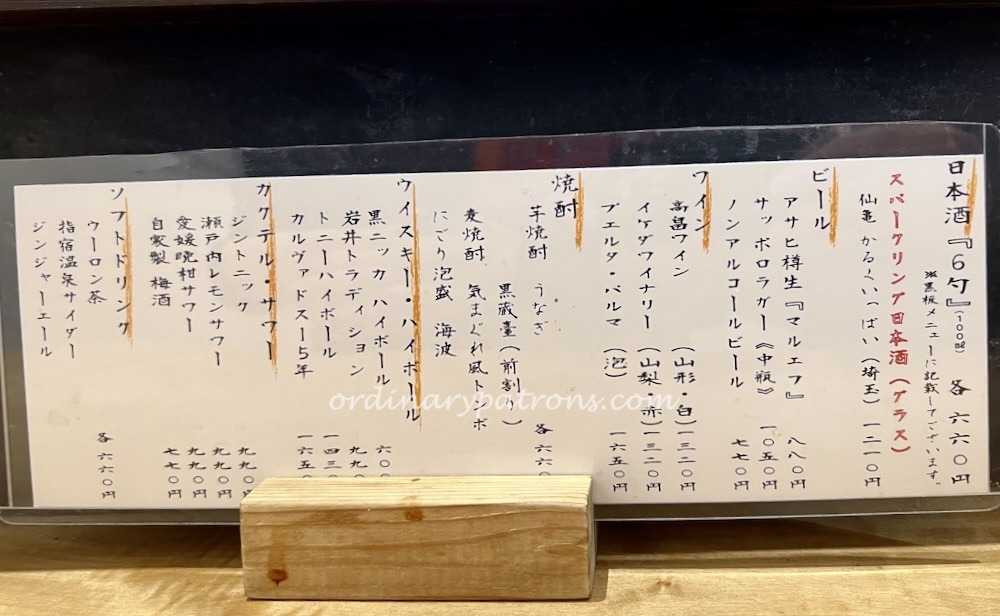 日本酒『6勺』(100ml) 各 六六〇円
※黒板メニューに記載してございます。
スパークリング日本酒(グラス)
仙亀 かるくいっぱい(埼玉)一二一〇円
ビール
アサヒ樽生『マルエフ』 八八〇円
サッポロラガー《中瓶》 一〇五〇円
ノンアルコールビール 七七〇円
ワイン
高畠ワイン (山形・白)一三二〇円
イケダワイナリー (山梨・赤)一三二〇円
プエルタ・パルマ (泡) 一六五〇円
焼酎
芋焼酎 うなぎ 各 六六〇
黒蔵臺(前割り)
麦焼酎 気まぐれ風トンボ
にごり泡盛 海波
ウイスキー・ハイボール
黒ニッカ ハイボール 六〇
岩井トラディション 九九
トニーハイボール 一四三
カルヴァドス－5年 一六五
カクテル・サワー
ジントニック 九九〇
瀬戸内レモンサワー 九九〇円
愛媛晩柑サワー 九九〇円
自家製 梅酒 七七〇円
ソフトドリンク
ウーロン茶 各 六六〇円
指宿温泉サイダー
ジンジャーエール
ordinarypatrons.com